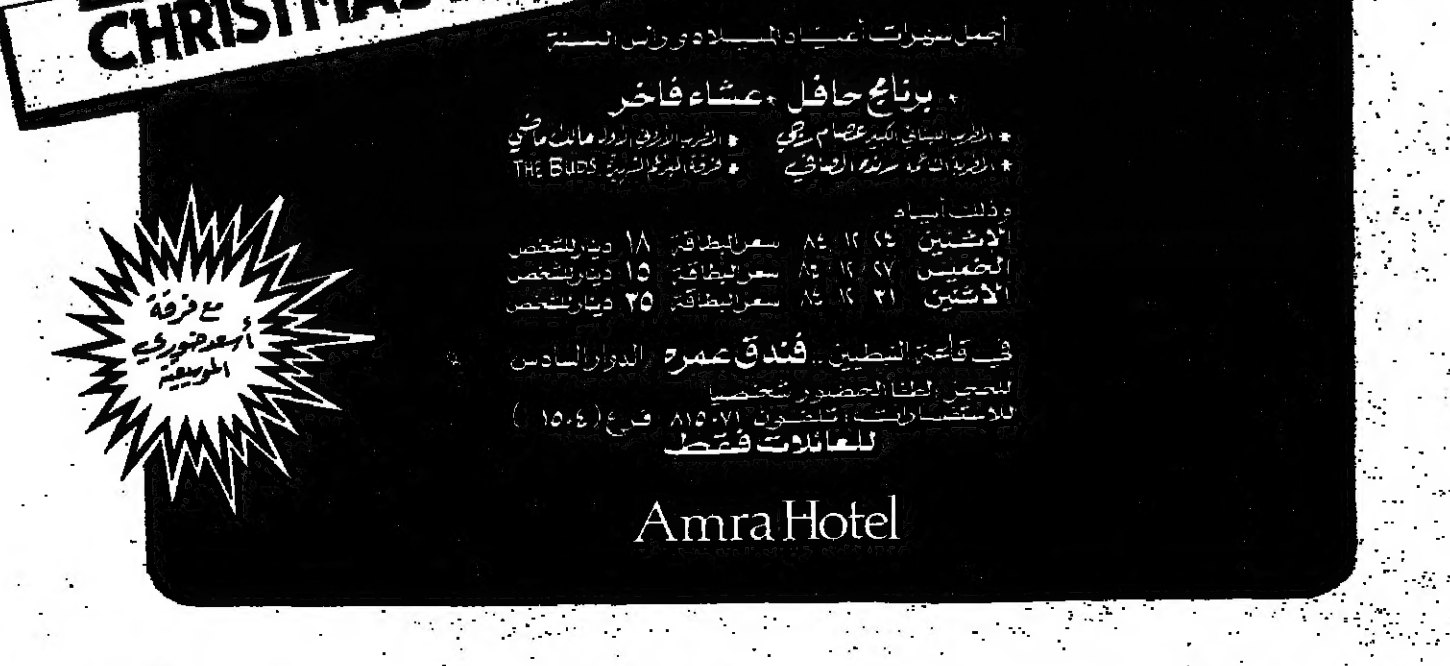 CHRISTMAS
أجمل سهرات أعياد الميلاد ورأس السنة
* برنامج حافل * عشاء فاخر
* المطرب اللبناني الكبير عصام رجي * المطرب الأردني الأول مالك ماضي
* المطربة الناعمة رنده الرفاعي * فرقة الغربية THE BUDS
وذلك أيام
الاثنين ٢٤ ١٢ ٨٤ سعر البطاقة ١٨ دينار للشخص
الخميس ٢٧ / ١٢ ٨٤ سعر البطاقة ١٥ دينار للشخص
الاثنين ٣١ ١٢ ٨٤ سعر البطاقة ٣٥ دينار للشخص
في قاعة النبطيين .. فندق عمره الدوار السادس
للحجز الحضور شخصيا
للاستفسارات : تلفون ٨١٥٠٧١ فرع ( ١٥٠٤ )
للعائلات فقط
مع فرقة
أسعد خوري
الموسيقية
Amra Hotel